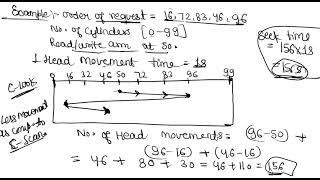 Example:- order of request = 16,72,83,46,96
No. of Cylinders [0-99]
Read/write arm at 50.
1 Head Movement time = 1s
Seek time
= 156 x 1s
= 156s
C-look
0 16 32 46 50 72 83 96 99
Less movement
as compare to
C-Scan
No. of Head movements = (96-50) +
(96-16) + (46-16)
= 46 + 80 + 30 = 46 + 110 = 156